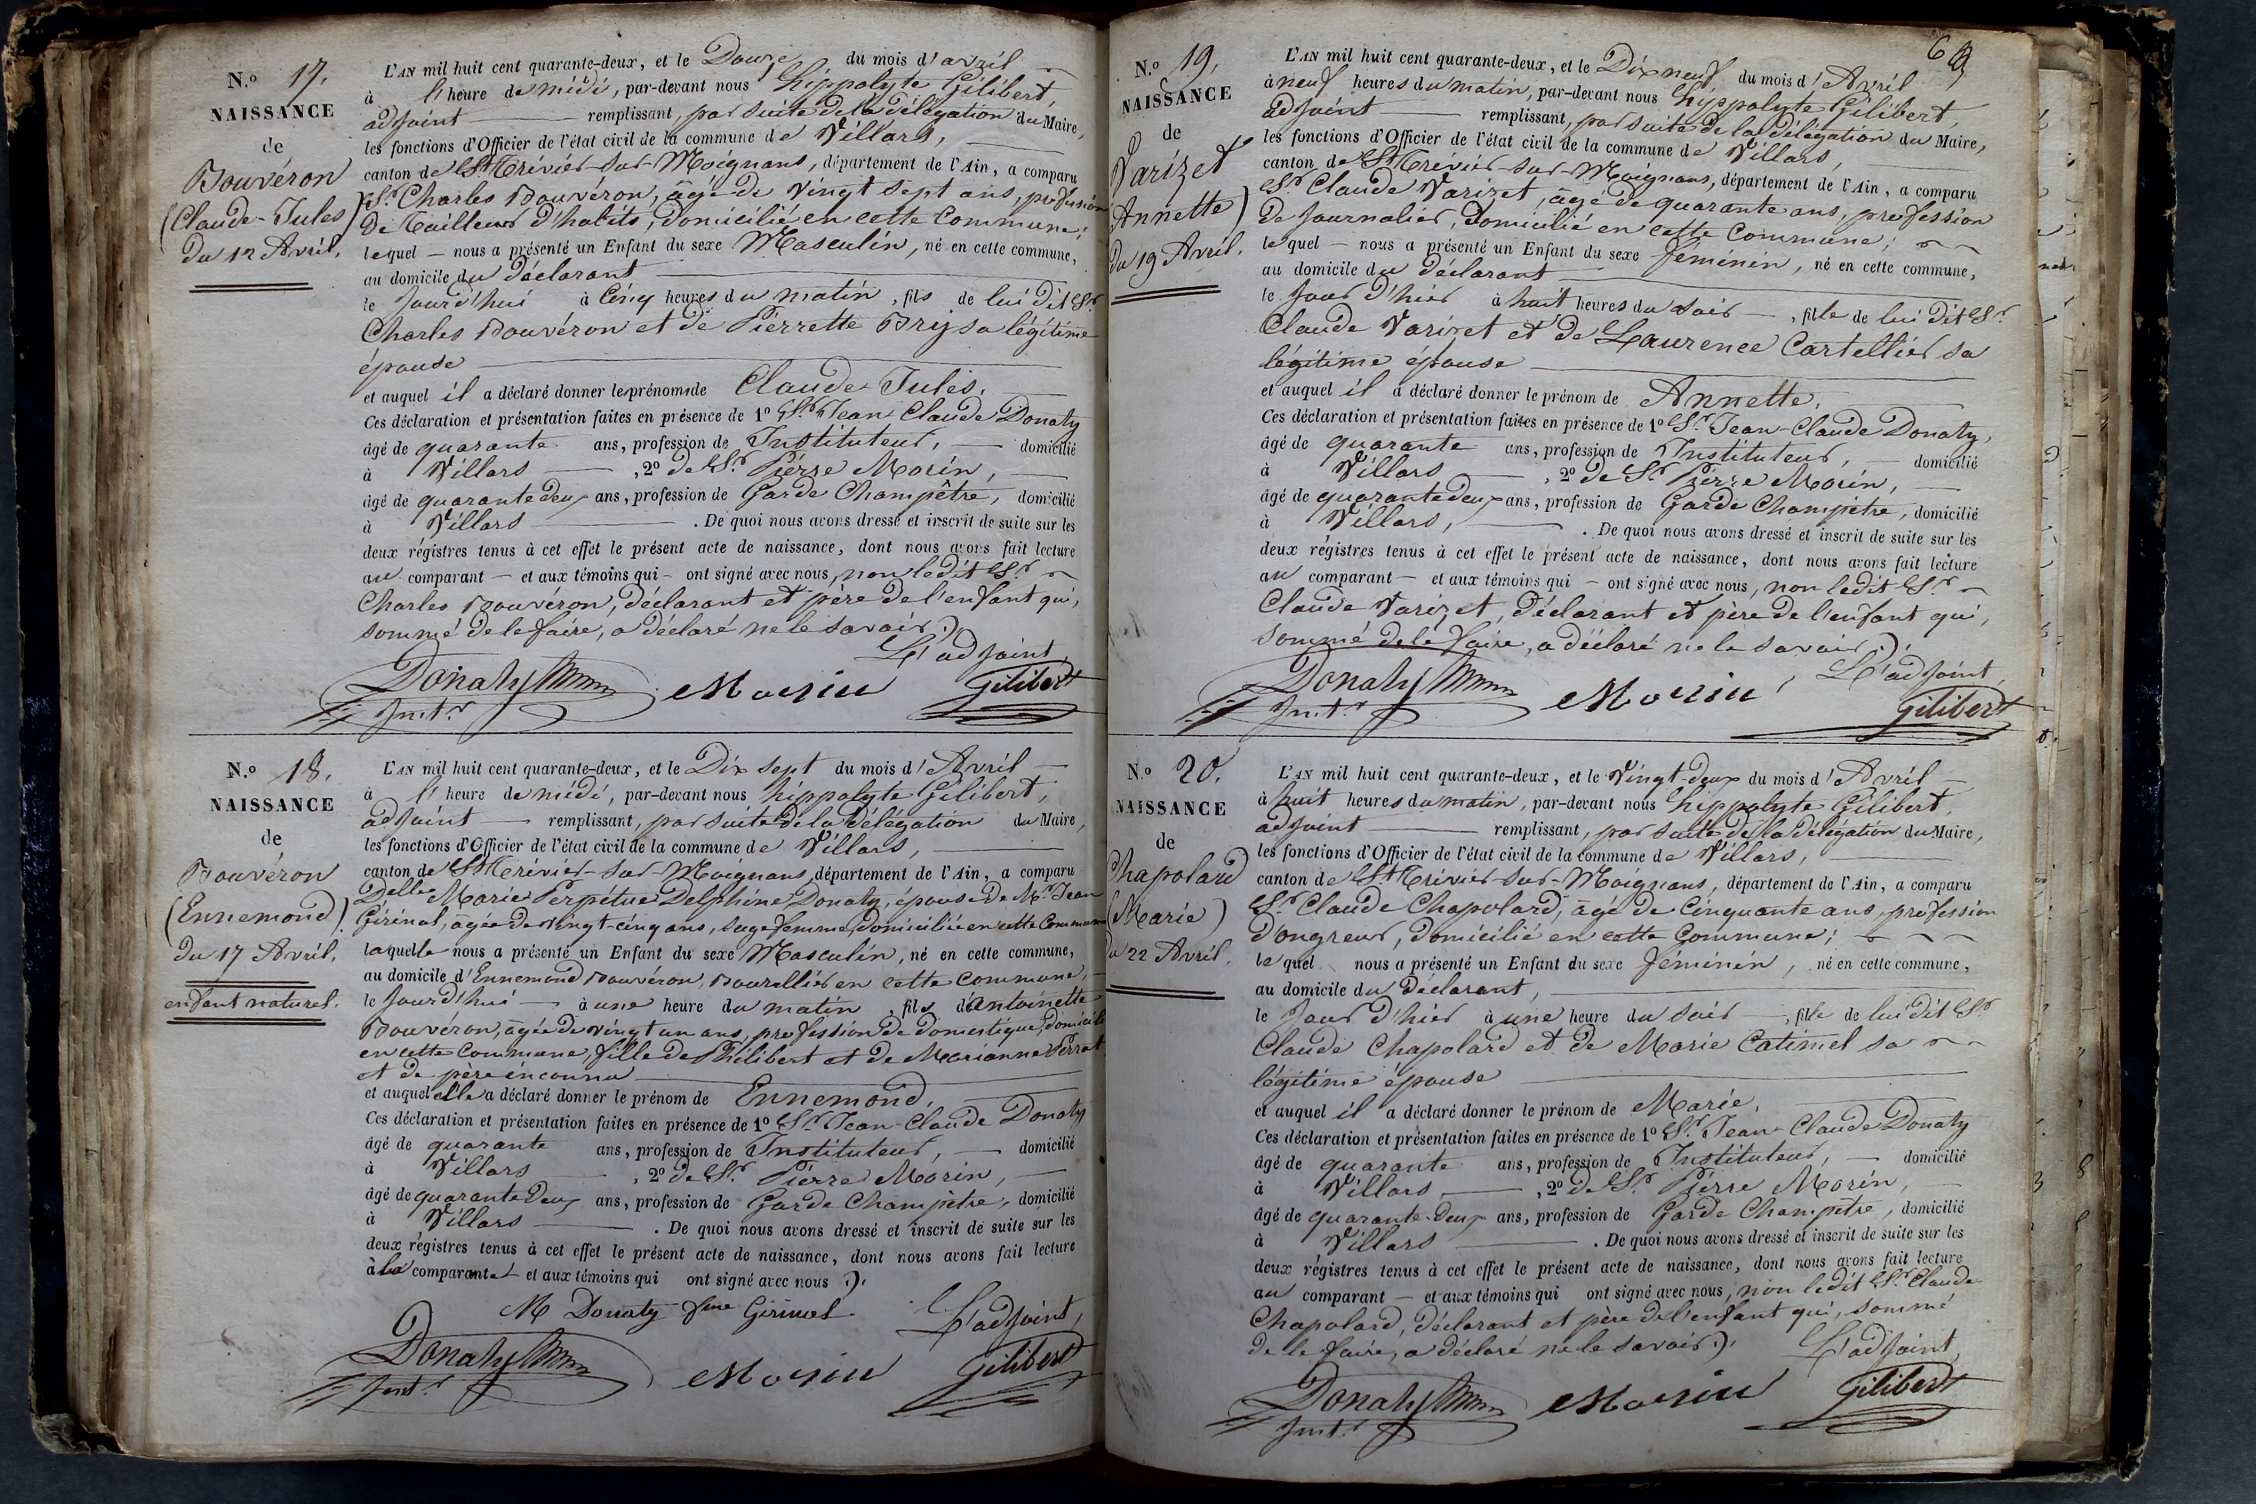 N.º 17.
NAISSANCE
de
Bouvéron
(Claude-Jules)
du 12 Avril.
L'AN mil huit cent quarante-deux, et le Douze du mois d'avril
à l'heure de midi, par-devant nous hippolyte Gilibert,
adjoint remplissant, par suite de la délégation du Maire,
les fonctions d'Officier de l'état civil de la commune de Villars,
canton de St Trivier-sur-Moignans, département de l'Ain, a comparu
Sr. Charles Bouvéron, âgé de vingt sept ans, profession
de Tailleur d'habits, domicilié en cette Commune;
lequel – nous a présenté un Enfant du sexe Masculin, né en cette commune,
au domicile du déclarant
le jourd'hui à Cinq heures du matin, fils de lui dit Sr.
Charles Bouvéron et de Pierrette Bry sa légitime
épouse
et auquel il a déclaré donner les prénoms de Claude Jules.
Ces déclaration et présentation faites en présence de 1º Sr. Jean Claude Donaty
âgé de quarante ans, profession de Instituteur, domicilié
à Villars, 2º de Sr. Pierre Morin,
âgé de quarante deux ans, profession de Garde Champêtre, domicilié
à Villars. De quoi nous avons dressé et inscrit de suite sur les
deux régistres tenus à cet effet le présent acte de naissance, dont nous avons fait lecture
au comparant – et aux témoins qui – ont signé avec nous, non ledit Sr.
Charles Bouvéron, déclarant et père de l'enfant qui,
sommé de le faire, a déclaré ne le savoir.
L'adjoint,
Donaty Morin Gilibert
Inst.r
N.º 18.
NAISSANCE
de
Bouvéron
(Ennemond).
du 17 Avril.
enfant naturel.
L'AN mil huit cent quarante-deux, et le Dix sept du mois d'Avril
à l'heure de midi, par-devant nous hippolyte Gilibert,
adjoint remplissant, par suite de la délégation du Maire,
les fonctions d'Officier de l'état civil de la commune de Villars,
canton de St Trivier-sur-Moignans, département de l'Ain, a comparu
Delle Marie Perpétue Delphine Donaty, épouse de Mr. Jean
Girinal, âgée de vingt-cinq ans, sage femme, domiciliée en cette Commune
laquelle nous a présenté un Enfant du sexe Masculin, né en cette commune,
au domicile d'Ennemond Bouvéron, Bourellier en cette Commune,
le jourd'hui à une heure du matin, fils d'Antoinette
Bouvéron, âgée de vingt un ans, profession de domestique, domiciliée
en cette Commune, fille de Philibert et de Marianne Perrat
et de père inconnu
et auquel elle a déclaré donner le prénom de Ennemond.
Ces déclaration et présentation faites en présence de 1º Sr. Jean Claude Donaty
âgé de quarante ans, profession de Instituteur, domicilié
à Villars, 2º de Sr. Pierre Morin,
âgé de quarante Deux ans, profession de Garde Champêtre, domicilié
à Villars. De quoi nous avons dressé et inscrit de suite sur les
deux régistres tenus à cet effet le présent acte de naissance, dont nous avons fait lecture
à la comparante – et aux témoins qui ont signé avec nous.
M Donaty fme Girinal
L'adjoint,
Donaty Morin Gilibert
Inst.r
N.º 19.
NAISSANCE
de
Varizet
Annette)
du 19 Avril.
L'AN mil huit cent quarante-deux, et le Dix neuf du mois d'Avril
à neuf heures du matin, par-devant nous hippolyte Gilibert,
adjoint remplissant, par suite de la délégation du Maire,
les fonctions d'Officier de l'état civil de la commune de Villars,
canton de St Trivier-sur-Moignans, département de l'Ain, a comparu
Sr. Claude Varizet, âgé de quarante ans, profession
de journalier, domicilié en cette Commune;
lequel – nous a présenté un Enfant du sexe féminin, né en cette commune,
au domicile du déclarant
le jour d'hier à huit heures du soir, fille de lui dit Sr.
Claude Varizet et de Laurence Cartellier sa
légitime épouse
et auquel il a déclaré donner le prénom de Annette.
Ces déclaration et présentation faites en présence de 1º Sr. Jean-Claude Donaty,
âgé de quarante ans, profession de Instituteur, domicilié
à Villars, 2º de Sr. Pierre Morin,
âgé de quarante deux ans, profession de Garde Champêtre, domicilié
à Villars. De quoi nous avons dressé et inscrit de suite sur les
deux régistres tenus à cet effet le présent acte de naissance, dont nous avons fait lecture
au comparant – et aux témoins qui – ont signé avec nous, non ledit Sr.
Claude Varizet, déclarant et père de l'enfant qui,
sommé de le faire, a déclaré ne le savoir.
L'adjoint,
Donaty Morin Gilibert
Inst.r
N.º 20.
NAISSANCE
de
Chapolard
(Marie)
du 22 Avril.
L'AN mil huit cent quarante-deux, et le Vingt-deux du mois d'Avril
à huit heures du matin, par-devant nous hippolyte Gilibert,
adjoint remplissant, par suite de la délégation du Maire,
les fonctions d'Officier de l'état civil de la commune de Villars,
canton de St Trivier-sur-Moignans, département de l'Ain, a comparu
Sr. Claude Chapolard, âgé de Cinquante ans, profession
d'ongreur, domicilié en cette Commune;
lequel nous a présenté un Enfant du sexe féminin, né en cette commune,
au domicile du déclarant,
le jour d'hier à une heure du soir, fille de lui dit Sr.
Claude Chapolard et de Marie Catimel sa
légitime épouse
et auquel il a déclaré donner le prénom de Marie.
Ces déclaration et présentation faites en présence de 1º Sr. Jean Claude Donaty
âgé de quarante ans, profession de Instituteur, domicilié
à Villars, 2º de Sr. Pierre Morin,
âgé de quarante-deux ans, profession de Garde Champêtre, domicilié
à Villars. De quoi nous avons dressé et inscrit de suite sur les
deux régistres tenus à cet effet le présent acte de naissance, dont nous avons fait lecture
au comparant – et aux témoins qui ont signé avec nous, non ledit Sr. Claude
Chapolard, déclarant et père de l'enfant qui, sommé
de le faire, a déclaré ne le savoir.
L'adjoint,
Donaty Morin Gilibert
Inst.r